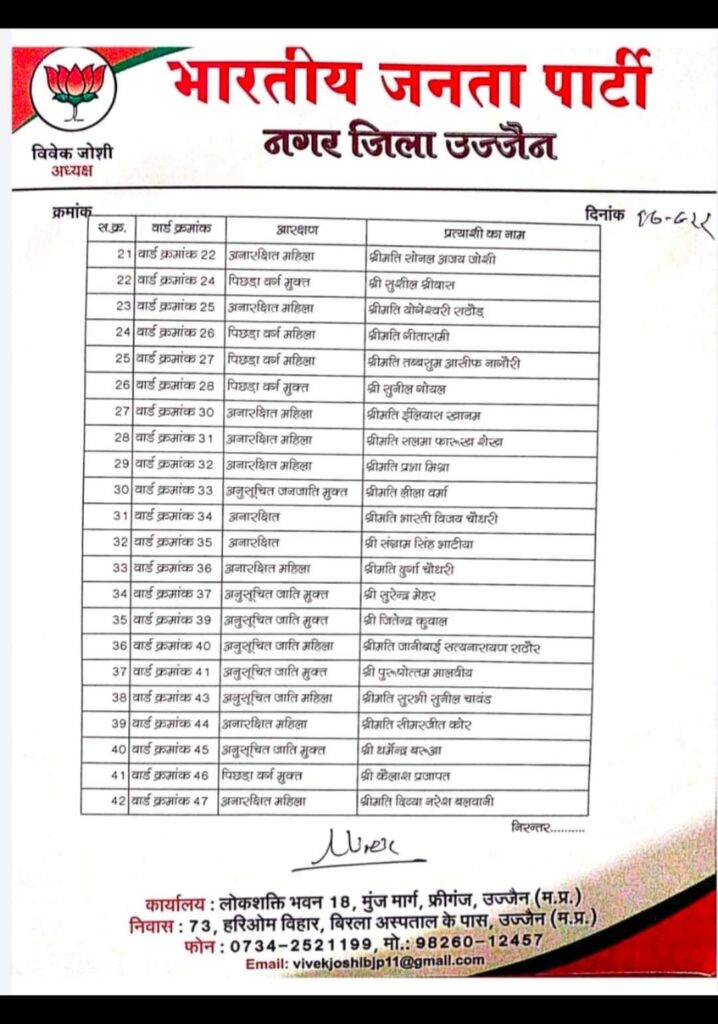 भारतीय जनता पार्टी
नगर जिला उज्जैन
विवेक जोशी
अध्यक्ष
क्रमांक
दिनांक
स.क्र. वार्ड क्रमांक आरक्षण प्रत्याशी का नाम
21 वार्ड क्रमांक 22 अनारक्षित महिला श्रीमति सोनल अजय जोशी
22 वार्ड क्रमांक 24 पिछड़ा वर्ग मुक्त श्री सुशील श्रीवास
23 वार्ड क्रमांक 25 अनारक्षित महिला श्रीमति योगेश्वरी राठौड़
24 वार्ड क्रमांक 26 पिछड़ा वर्ग महिला श्रीमति गीतारामी
25 वार्ड क्रमांक 27 पिछड़ा वर्ग महिला श्रीमति तब्बसुम आसीफ नागौरी
26 वार्ड क्रमांक 28 पिछड़ा वर्ग मुक्त श्री सुनील गोयल
27 वार्ड क्रमांक 30 अनारक्षित महिला श्रीमति ईलियास खानम
28 वार्ड क्रमांक 31 अनारक्षित महिला श्रीमति सलमा फारुख शेख
29 वार्ड क्रमांक 32 अनारक्षित महिला श्रीमति प्रभा मिश्रा
30 वार्ड क्रमांक 33 अनुसूचित जनजाति मुक्त श्रीमति लीला वर्मा
31 वार्ड क्रमांक 34 अनारक्षित श्रीमति भारती विजय चौधरी
32 वार्ड क्रमांक 35 अनारक्षित श्री संग्राम सिंह भाटीया
33 वार्ड क्रमांक 36 अनारक्षित महिला श्रीमति दुर्गा चौधरी
34 वार्ड क्रमांक 37 अनुसूचित जाति मुक्त श्री सुरेन्द्र मेहर
35 वार्ड क्रमांक 39 अनुसूचित जाति मुक्त श्री जितेन्द्र कुवाल
36 वार्ड क्रमांक 40 अनुसूचित जाति महिला श्रीमति जानीबाई सत्यनारायण राठौर
37 वार्ड क्रमांक 41 अनुसूचित जाति मुक्त श्री पुरूषोत्तम मालवीय
38 वार्ड क्रमांक 43 अनुसूचित जाति महिला श्रीमति सुरभी सुनील चावंड
39 वार्ड क्रमांक 44 अनारक्षित महिला श्रीमति सीमरजीत कोर
40 वार्ड क्रमांक 45 अनुसूचित जाति मुक्त श्री धर्मेन्द्र बरूआ
41 वार्ड क्रमांक 46 पिछड़ा वर्ग मुक्त श्री कैलाश प्रजापत
42 वार्ड क्रमांक 47 अनारक्षित महिला श्रीमति दिव्या नरेश बलवानी
निरन्तर..........
कार्यालय : लोकशक्ति भवन 18, मुंज मार्ग, फ्रीगंज, उज्जैन (म.प्र.)
निवास : 73, हरिओम विहार, बिरला अस्पताल के पास, उज्जैन (म.प्र.)
फोन : 0734-2521199, मो.: 98260-12457
Email: vivekjoshibjp11@gmail.com